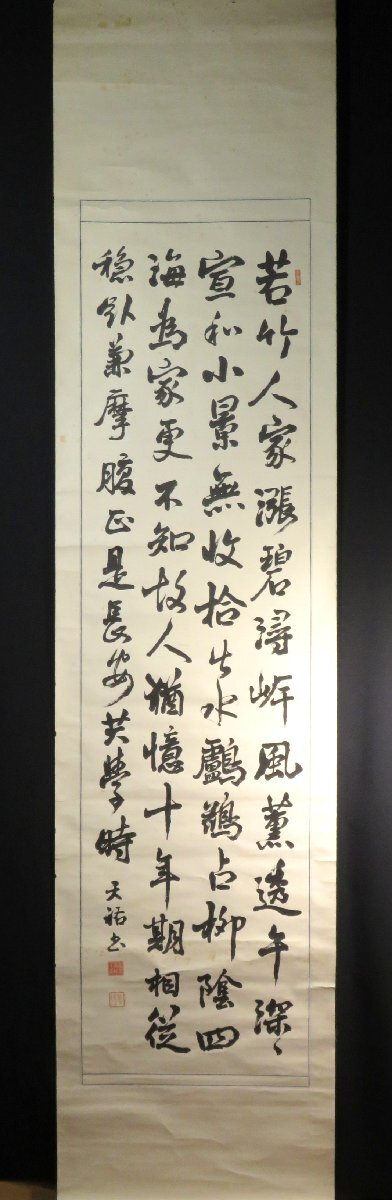 若竹人家漲碧潯岸風薰透午深〻
宣和小景無收拾出水鸕鶿占柳陰四
海為家更不知故人猶憶十年期相從
穩臥兼摩腹正是長安共學時
天祐書